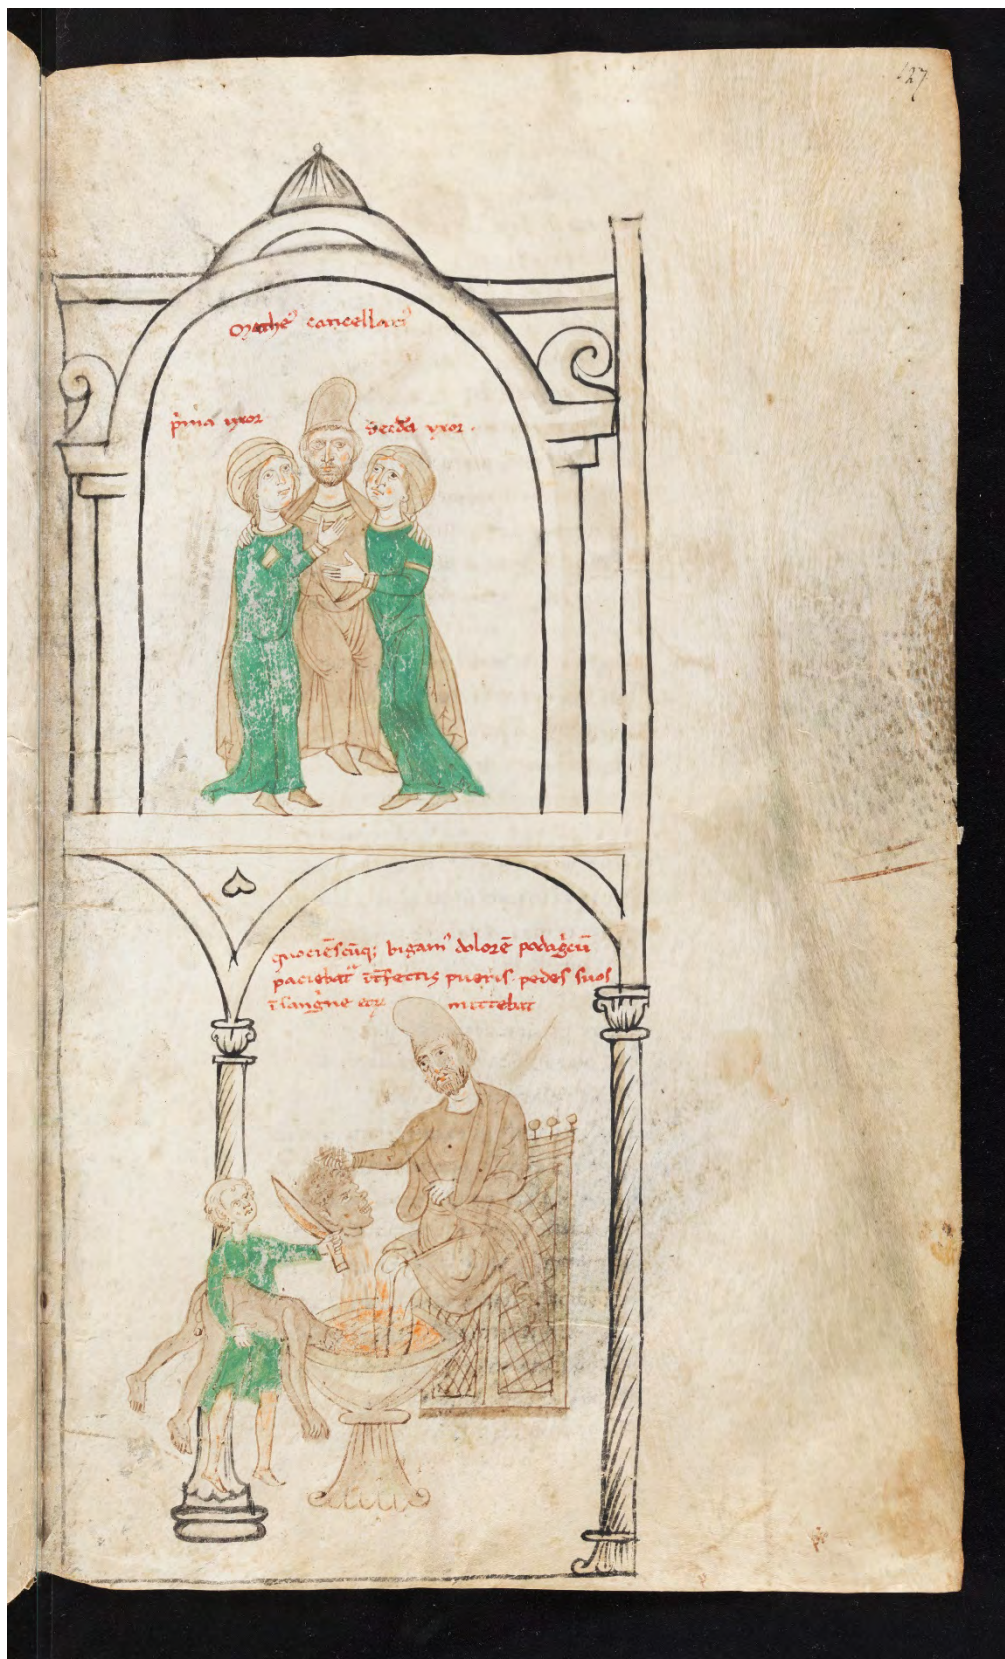 127
Mathe᾽ cancellari᾽
p͛ma uxor
Secda uxor .
quociēscūq; bigam᾽ dolorē podag͛cū
paciebat᾽ īt͛fectis pueris . pedes suos
ī sang͛ne eoꝝ mittebat